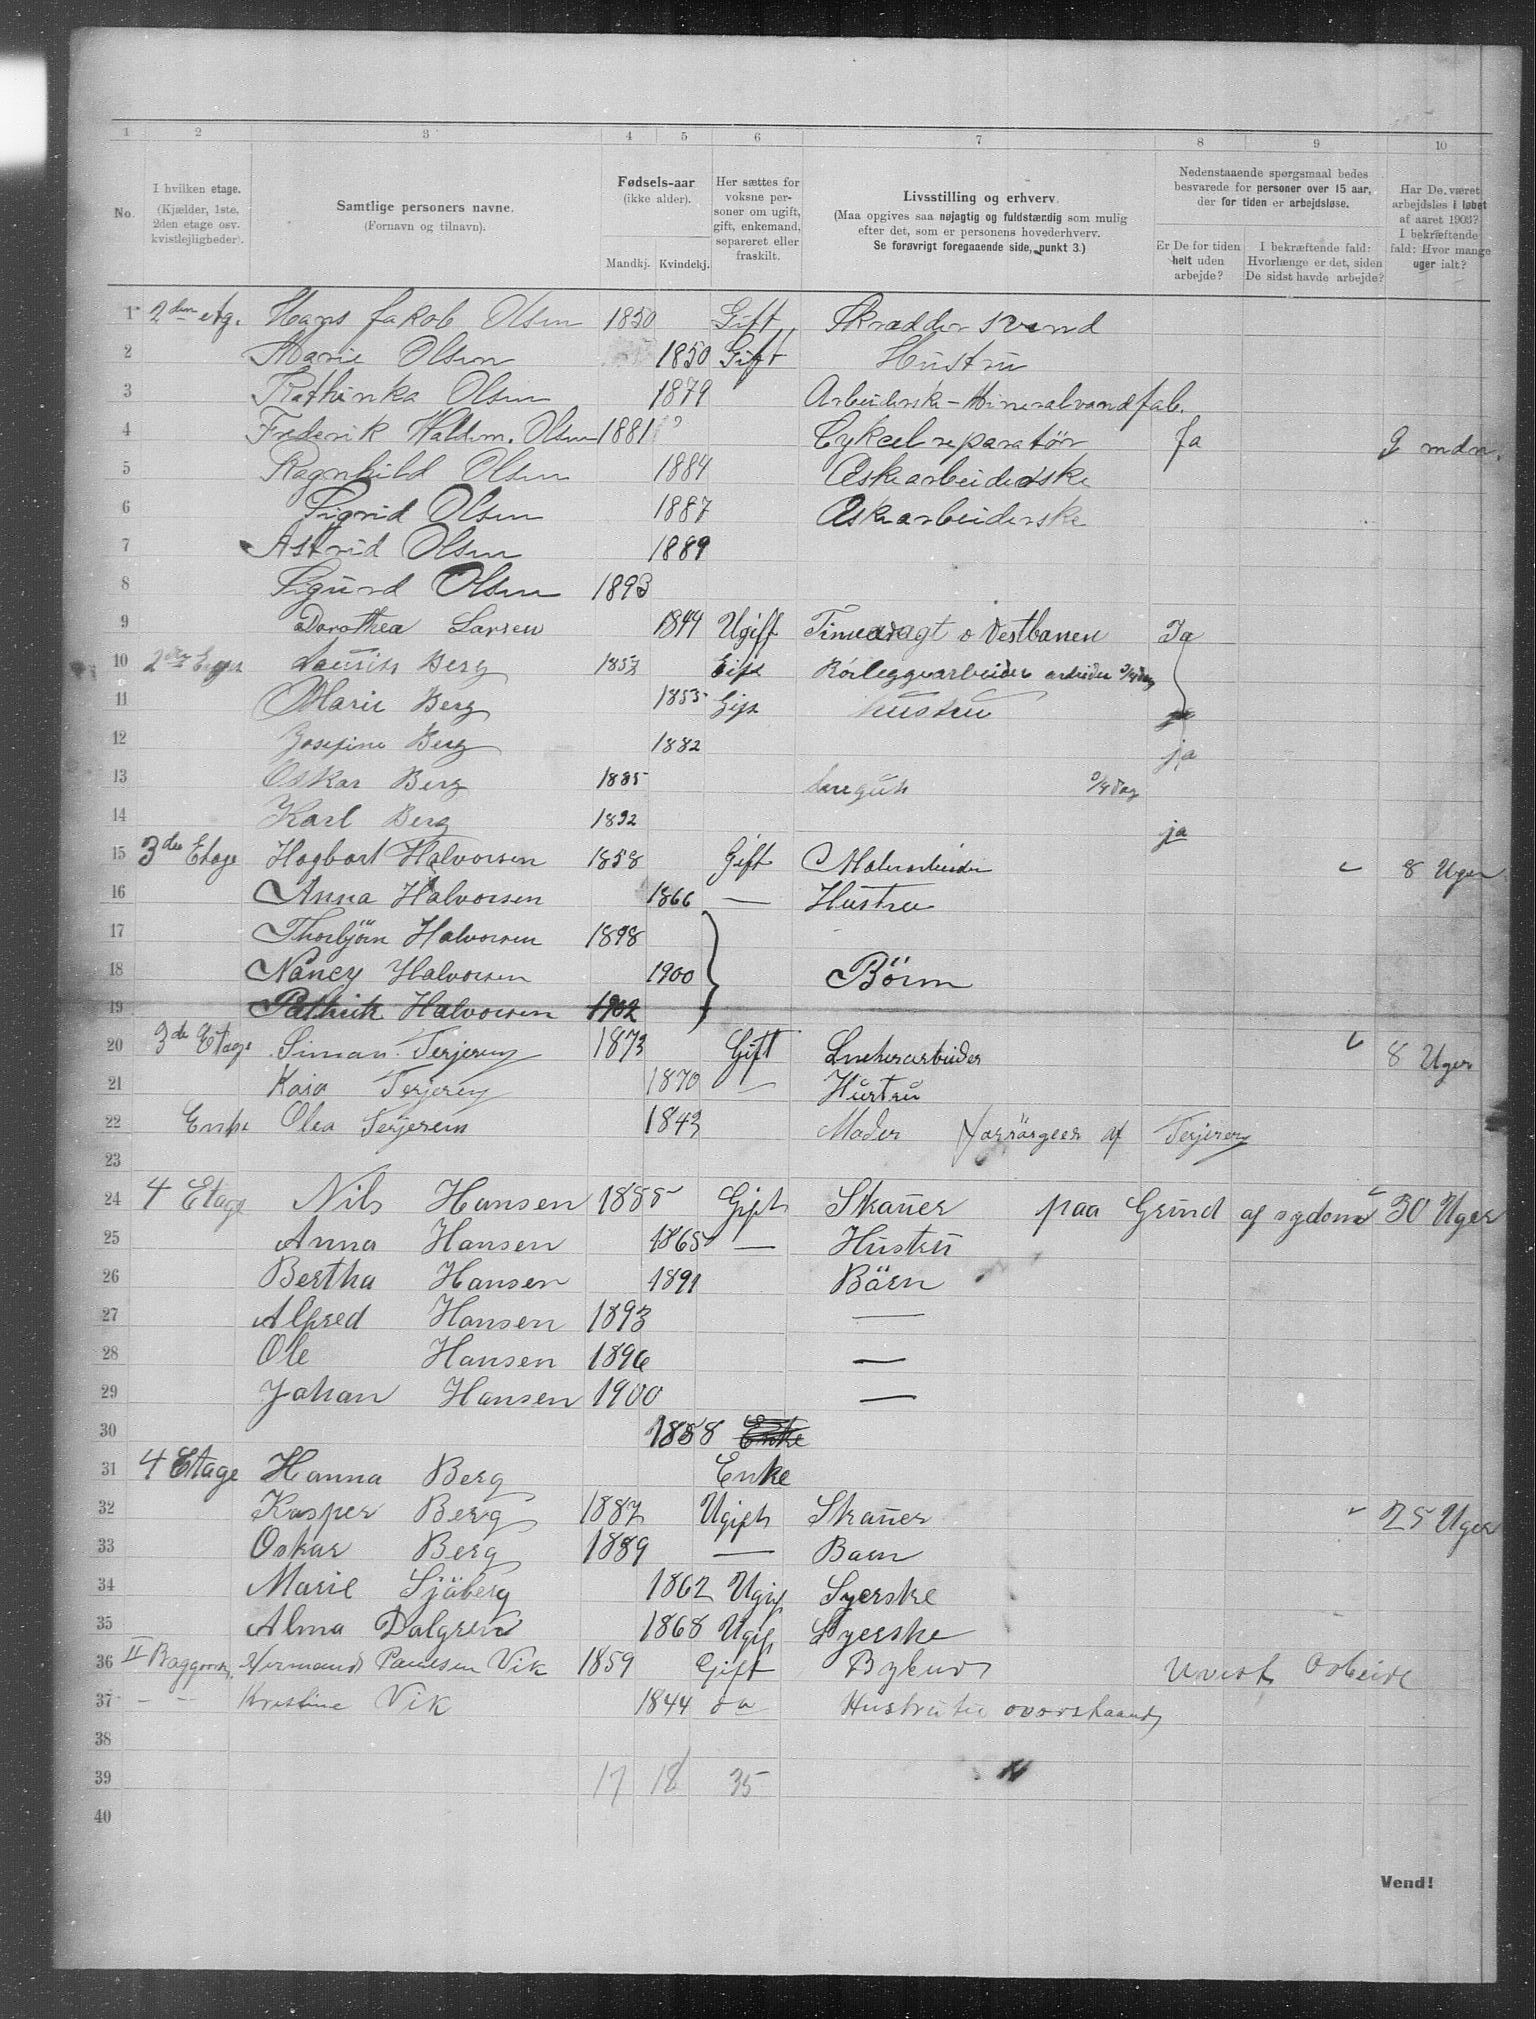 1 2 3 4 5 6 7 8 9 10
No.
I hvilken etage.
(Kjælder, 1ste,
2den etage osv.
kvistlejligheder).
Samtlige personers navne.
(Fornavn og tilnavn).
Fødsels-aar
(ikke alder).
Mandkj. Kvindekj.
Her sættes for
voksne per-
soner om ugift,
gift, enkemand,
separeret eller
fraskilt.
Livsstilling og erhverv.
(Maa opgives saa nøjagtig og fuldstændig som mulig
efter det, som er personens hovederhverv.
Se forøvrigt foregaaende side, punkt 3.)
Nedenstaaende spørgsmaal bedes
besvarede for personer over 15 aar,
der for tiden er arbejdsløse.
Er De for tiden
helt uden
arbejde?
I bekræftende fald:
Hvorlænge er det, siden
De sidst havde arbejde?
Har De været
arbejdsløs i løbet
af aaret 1903?
I bekræftende
fald: Hvor mange
uger ialt?
1 2den etg. Hans Jakob Olsen 1850 Gift Skrædder svend
2 Marie Olsen 1850 Gift Hustru
3 Kathinka Olsen 1879 Arbeiderske - Mineralvandfab.
4 Frederik Haldm. Olsen 1881 Cykelreparatör Ja 9 mdn.
5 Ragnhild Olsen 1884 Æskearbeiderske
6 Sigrid Olsen 1887 Æskearbeiderske
7 Astrid Olsen 1889
8 Sigurd Olsen 1893
9 Dorothea Larsen 1844 Ugift Vestbanen Ja
10 2den Etage Lauritz Berg 1857 Gift Rörleggerarbeider arbeider
11 Marie Berg 1855 Gift Hustru
12 Josefine Berg 1882 ja
13 Oskar Berg 1885
14 Karl Berg 1892 ja
15 3die Etage Hagbart Halvorsen 1858 Gift Malerarbeider 8 Uger
16 Anna Halvorsen 1866 — Hustru
17 Thorbjörn Halvorsen 1898
18 Nancy Halvorsen 1900 Börn
19 Pathrik Halvorsen 1902
20 3de Etage Siman Terjesen 1873 Gift 8 Uger
21 Kaia Terjesen 1870 — Hustru
22 Enke Olea Terjesen 1843 Moder forsörges af Terjesen
23
24 4 Etage Nils Hansen 1855 Gift Skauer paa Grund af sydom 30 Uger
25 Anna Hansen 1865 — Hustru
26 Bertha Hansen 1891 Börn
27 Alfred Hansen 1893 —
28 Ole Hansen 1896 —
29 Johan Hansen 1900 —
30 1858 Enke
31 4 Etage Hanna Berg Enke
32 Kasper Berg 1887 Ugift Skauer 25 Uger
33 Oskar Berg 1889 — Barn
34 Marie Sjöberg 1862 Ugif Syerske
35 Alma Dalgren 1868 Ugif Syerske
36 II Baggaard. Hermand Paulsen Vik 1859 Gift Bybud Uvist Arbeide
37 — — Kristine Vik 1844 do Hustru til ovorstaaende
38
39 17 18 35
40
Vend!